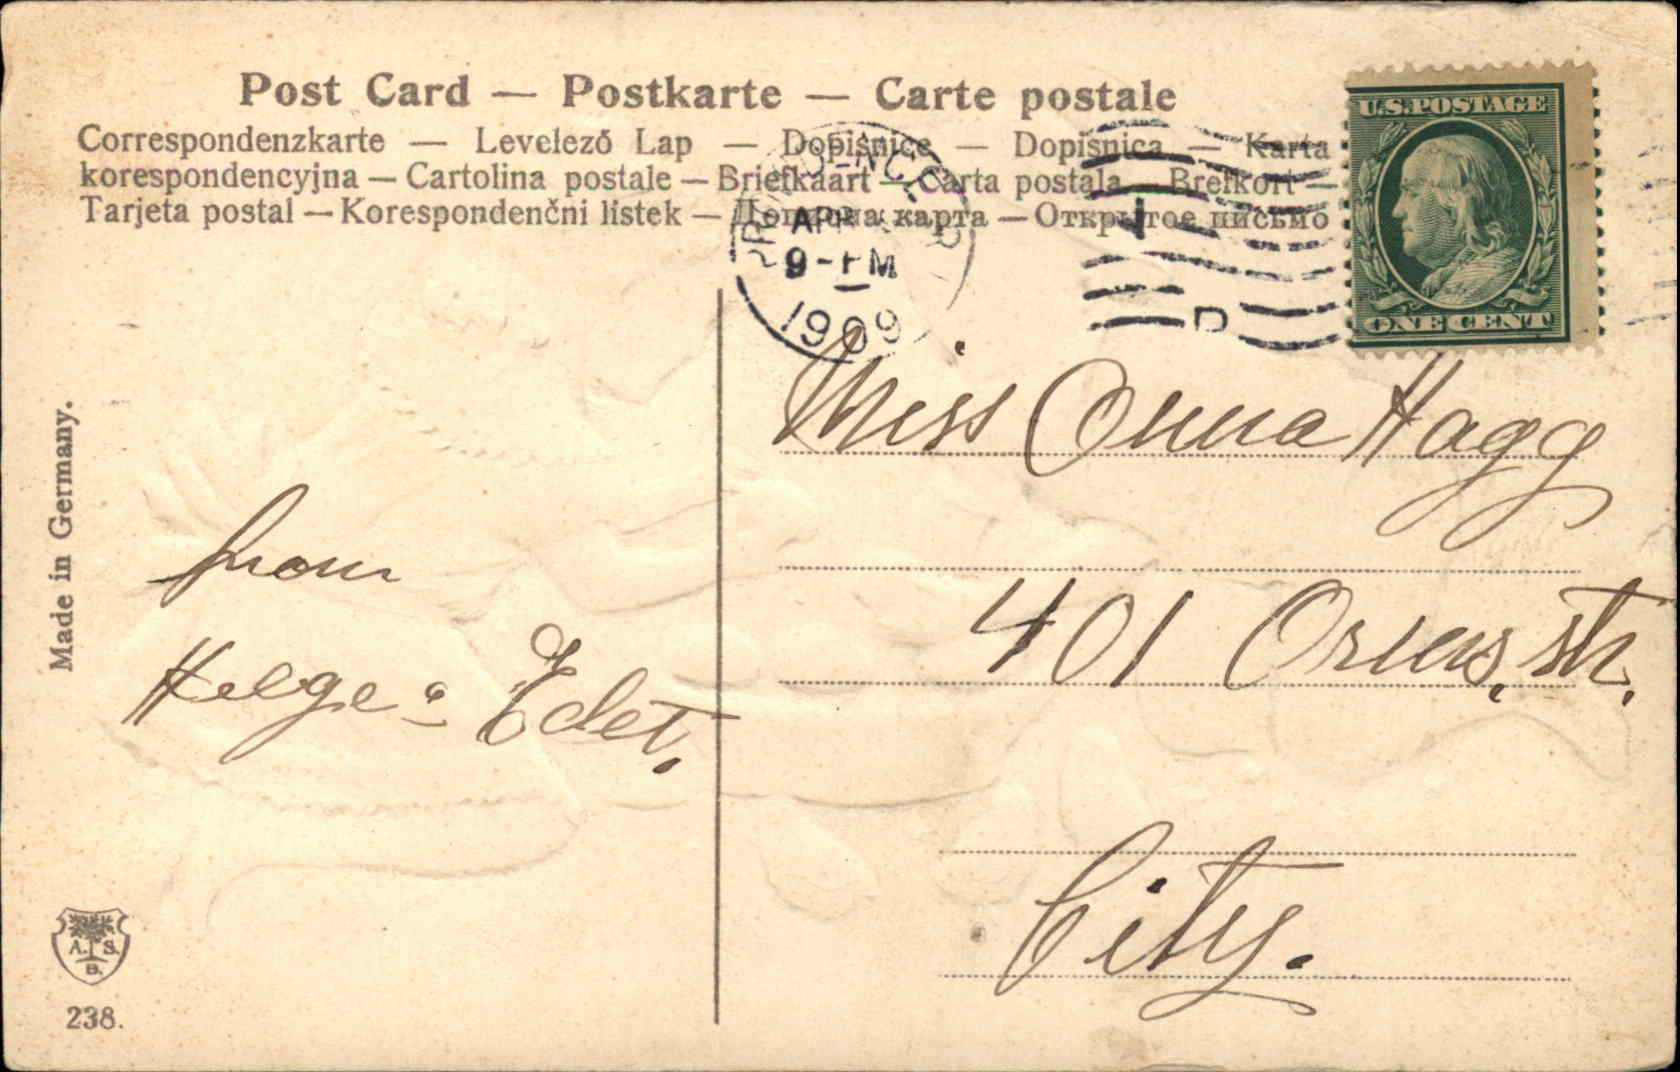 Post Card — Postkarte — Carte postale
Correspondenzkarte — Levelező Lap — Dopisnice — Dopisnica — Karta
korespondencyjna — Cartolina postale — Briefkaart — Carta postala — Brefkort —
Tarjeta postal — Korespondenčni listek — Дописна карта — Открытое письмо
U.S. POSTAGE
ONE CENT
APR
9-PM
1909
D
Miss Anna Hagg
401 st.
City.
from
Helge & Edet.
Made in Germany.
A. S.
B.
238.